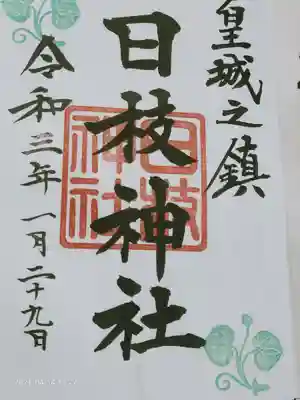 皇城之鎮
日枝神社
日枝
神社
令和三年一月二十九日